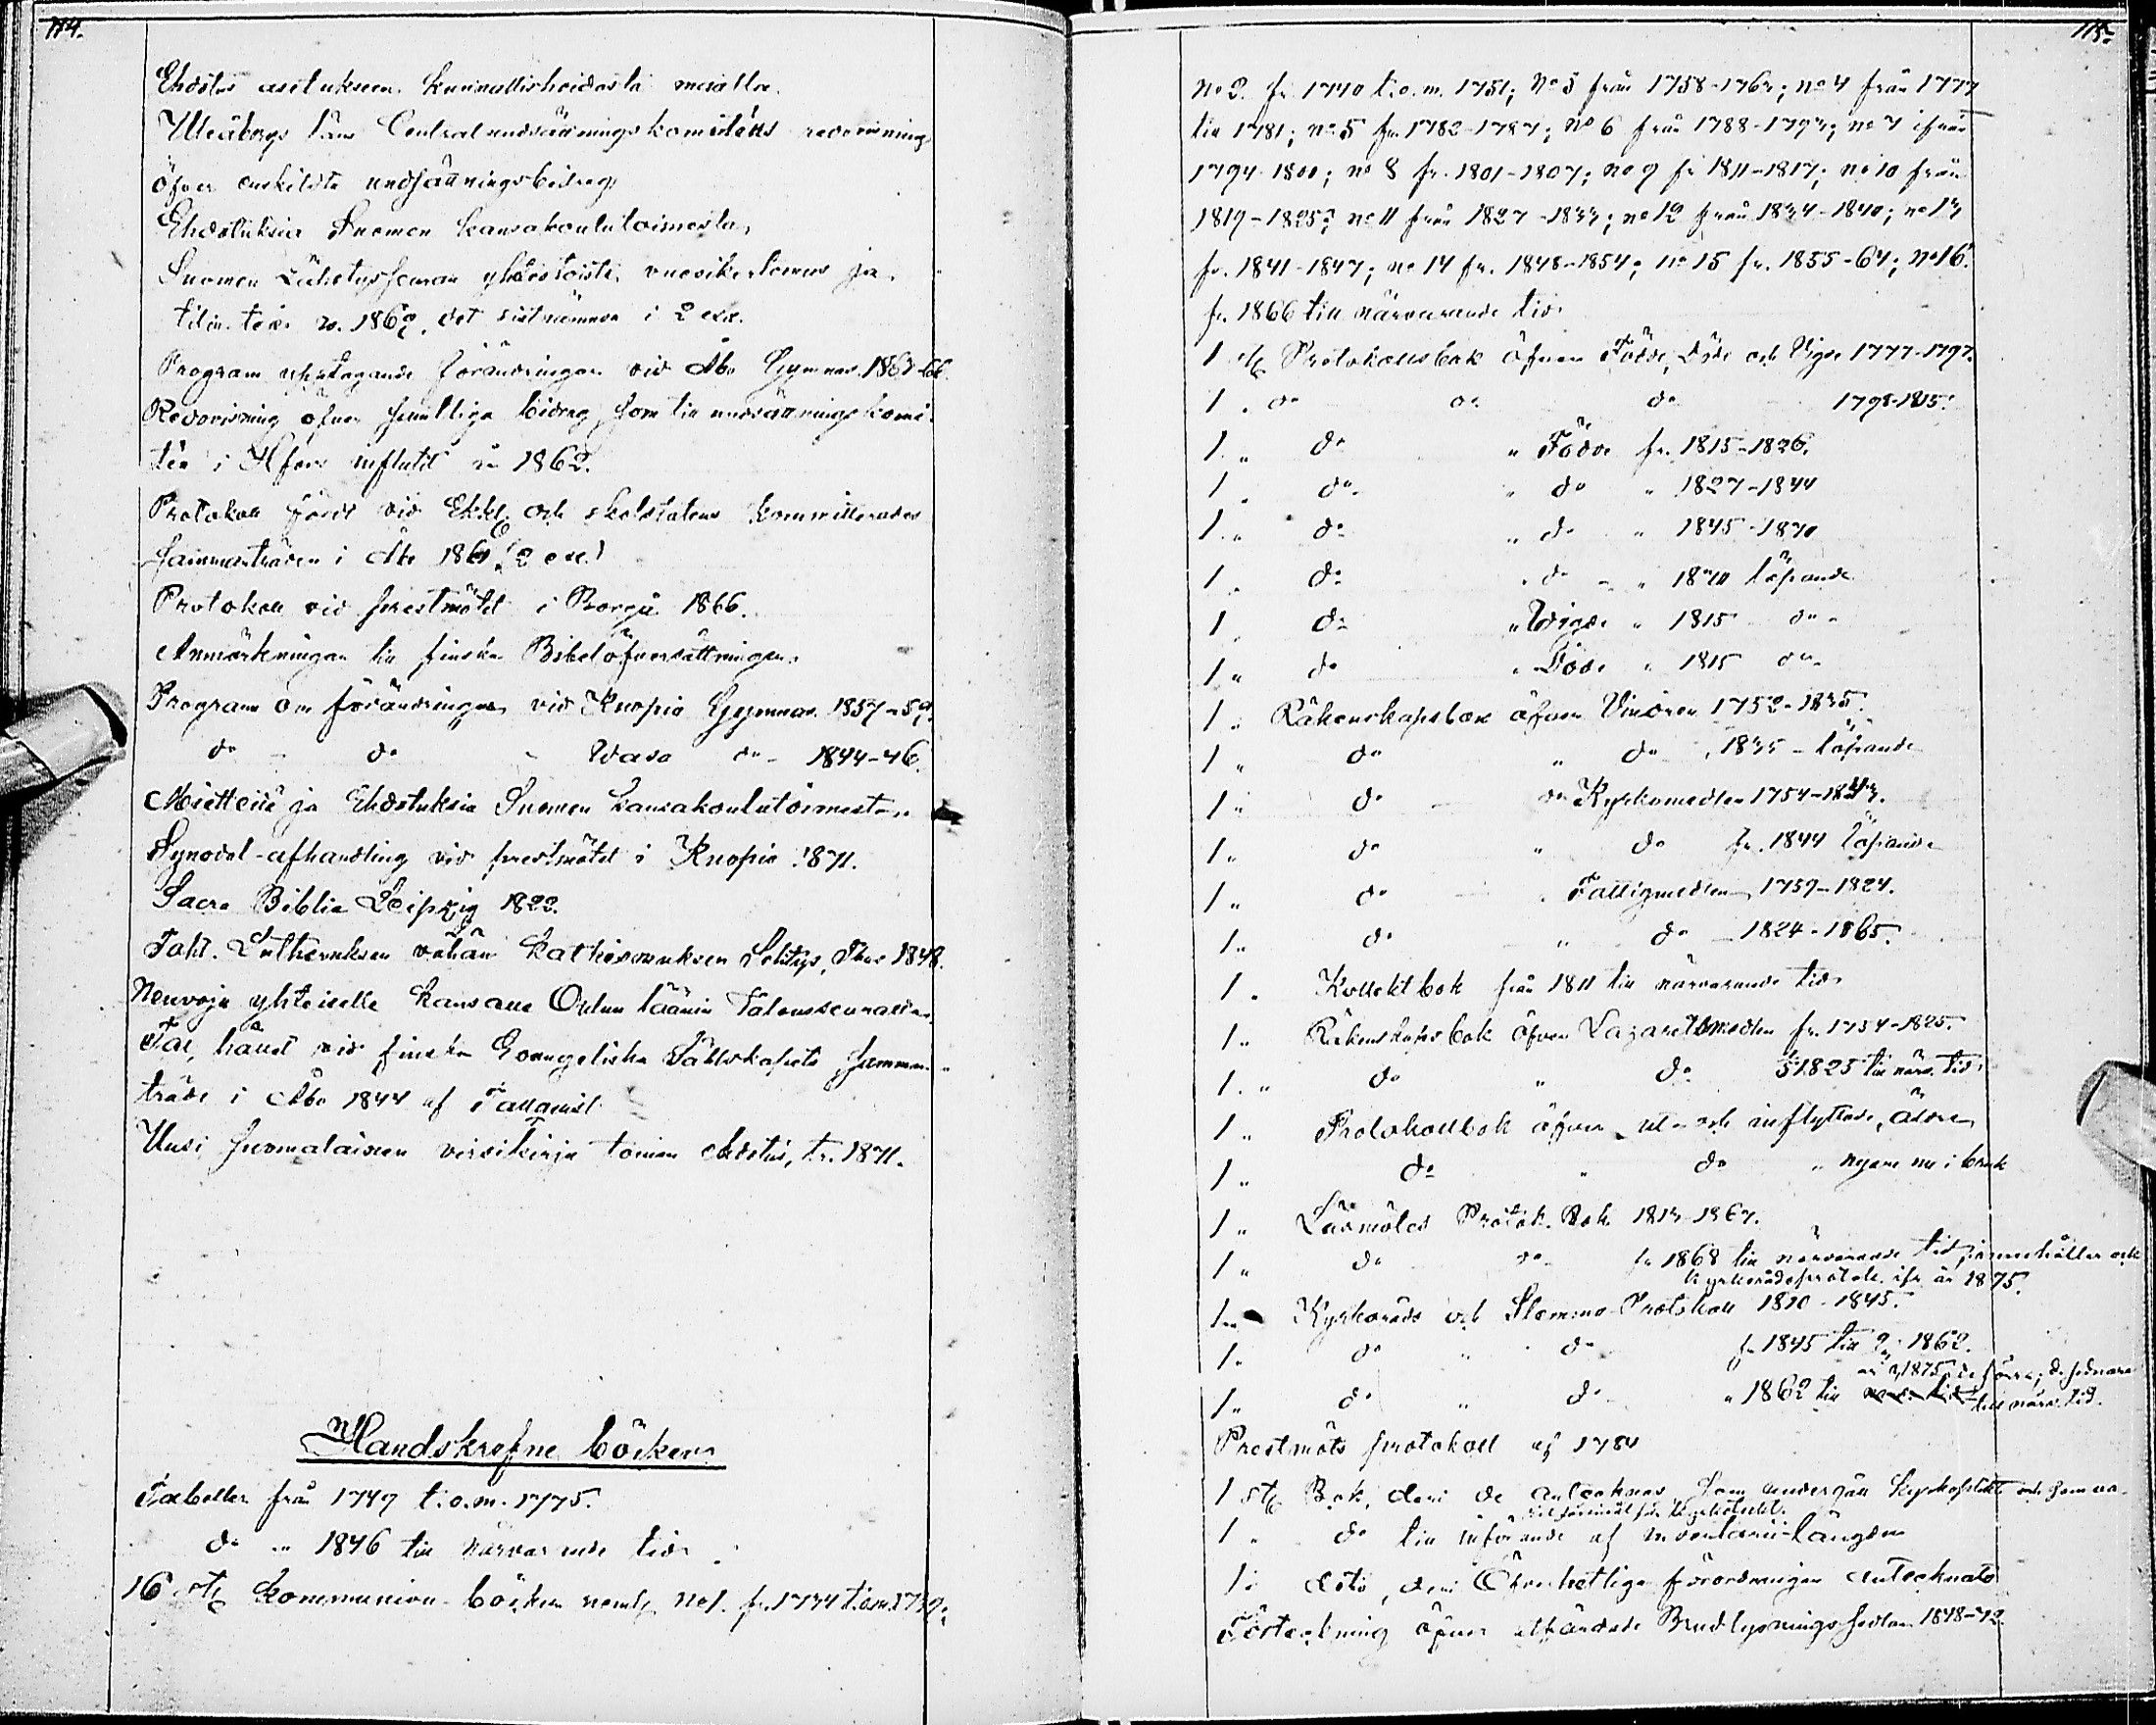 114.
Ehdotus asetukseen kunnallisheidosta maalla.
Uleåborgs läns Centralundsättningskomiténs redovisning
öfver enskildta undsättningsbidrag
Ehdotuksia Suomen kansakoulutoimesta,
Suomen Lähetysseuran yhdestoista vuosikertomus ja
tilin-teko v. 1869, det sistnämnda i 2 exx.
Program upptagande förändringar vid Åbo Gymnas. 1863-66.
Redovisning öfver samtliga bidrag, som till undsättningskomi-
tén i Hfors influtit år 1862.
Protokoll fördt vid Ekkl. och skolstatens kommitterades
sammanträden i Åbo 1861 (2 ex.)
Protokoll vid prestmötet i Borgå 1866.
Anmärkningar till finska Bibelöfversättningen.
Program om förändringar vid Kuopio Gymnas. 1857-59.
do - do - Wasa do - 1844-46.
Mietteitä ja Ehdotuksia Suomen kansakoulutoimesta.
Synodal-afhandling vid prestmötet i Kuopio 1871.
Sacra Biblia Leipzig 1822.
Toht. Lutheruksen vähän Kathismuksen Selitys, Turu 1848.
Neuvoja yhteiselle kansalle Oulun läänin Talousseuralta.
Tal, hållet vid finska Evangeliska Sällskapets samman-
träde i Åbo 1844 af Tallqvist
Uusi suomalaisen virsikirja toimen ehdotus, tr. 1871.
Handskrefne böcker
Tabeller från 1749 t.o.m. 1775.
do " 1846 till närvarande tid.
16 st. Kommunion-böcker neml. No 1. fr. 1734 t.o.m. 1739;
115.
No 2. fr. 1740 t.o.m. 1751; No 3 från 1758-1763; no 4 från 1777
till 1781; no 5 fr. 1782-1787; No 6 från 1788-1793; no 7 ifrån
1794-1800; no 8 fr. 1801-1807; no 9 fr 1811-1817; no 10 från
1819-1825; no 11 från 1827-1833; no 12 från 1834-1840; no 13
fr. 1841-1847; no 14 fr. 1848-1854; no 15 fr. 1855-64; No 16.
fr. 1866 till närvarande tid.
1 st. Protokollsbok öfver Födde, Döde och Vigde 1777-1797.
1 " do do do 1798-1815.
1 " do " Födde fr. 1815-1826.
1 " do " do " 1827-1844
1 " do " do " 1845-1870
1 " do " do " 1870 löpande
1 " do " Wigde " 1815 do -
1 " do " Döde " 1815 do -
1 " Räkenskapsbok öfver Vinören 1752-1835.
1 " do " do " 1835 - löpande
1 " do do Kyrkomedlen 1754-1843.
1 " do " do fr. 1844 löpande
1 " do " Fattigmedlen 1759-1824.
1 " do " do 1824-1865.
1 " Kollektbok från 1811 till närvarande tid
1 " Räkenskapsbok öfver Lazarettsmedlen fr. 1754-1825.
1 " do " do fr 1825 till närv. tid
1 " Protokollbok öfver ut- och inflyttade, äldre
1 " do " do " nyare nu i bruk
1 " Läsmötes Protok. Bok 1813-1867.
1 " do do fr 1868 till närvarande tid, innehåller ock
kyrkorådsprotok. ifr. år 1875.
1 " Kyrkoråds och Stämmo-Protokoll 1810-1845.
1 " do " do fr 1845 till 1862.
år 1875 de förra; de sednare
1 " do " do " 1862 till till närv. tid.
Prestmöts protokoll af 1784
1 st. Bok, deri de antecknas som undergått kyrkoplikt och som va-
1 " do till införande af inventarii-längden
1 " dito, deri Öfverhetliga förordningar antecknats
Förteckning öfver utfärdade Brudlysningssedlar 1848-72.